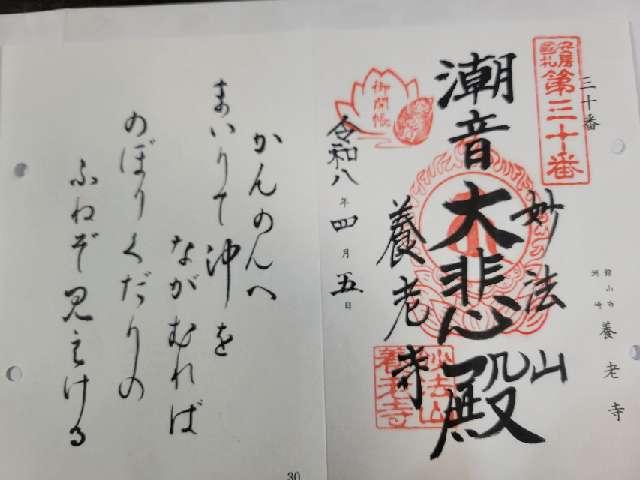 三十番
安房
国札
第三十番
館山市
洲崎
養老寺
妙法山
潮音大悲殿
養老寺
妙法山
養老寺
御開帳
令和八年四月五日
かんのんへ
まいりて沖を
ながむれば
のぼりくだりの
ふねぞ見えける
30